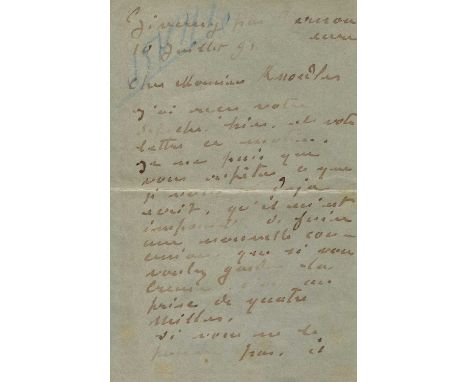 Giverny par Vernon
Eure
10 Juillet 91
Cher Monsieur Knoedler
J'ai reçu votre
dépêche hier, et votre
lettre ce matin.
Je ne puis que
vous répéter ce que
je vous déjà
écrit, qu'il m'est
impossible de faire
une nouvelle con-
cession que si vous
voulez garder la
au
prix de quatre
milles.
Si vous ne le
pas, il